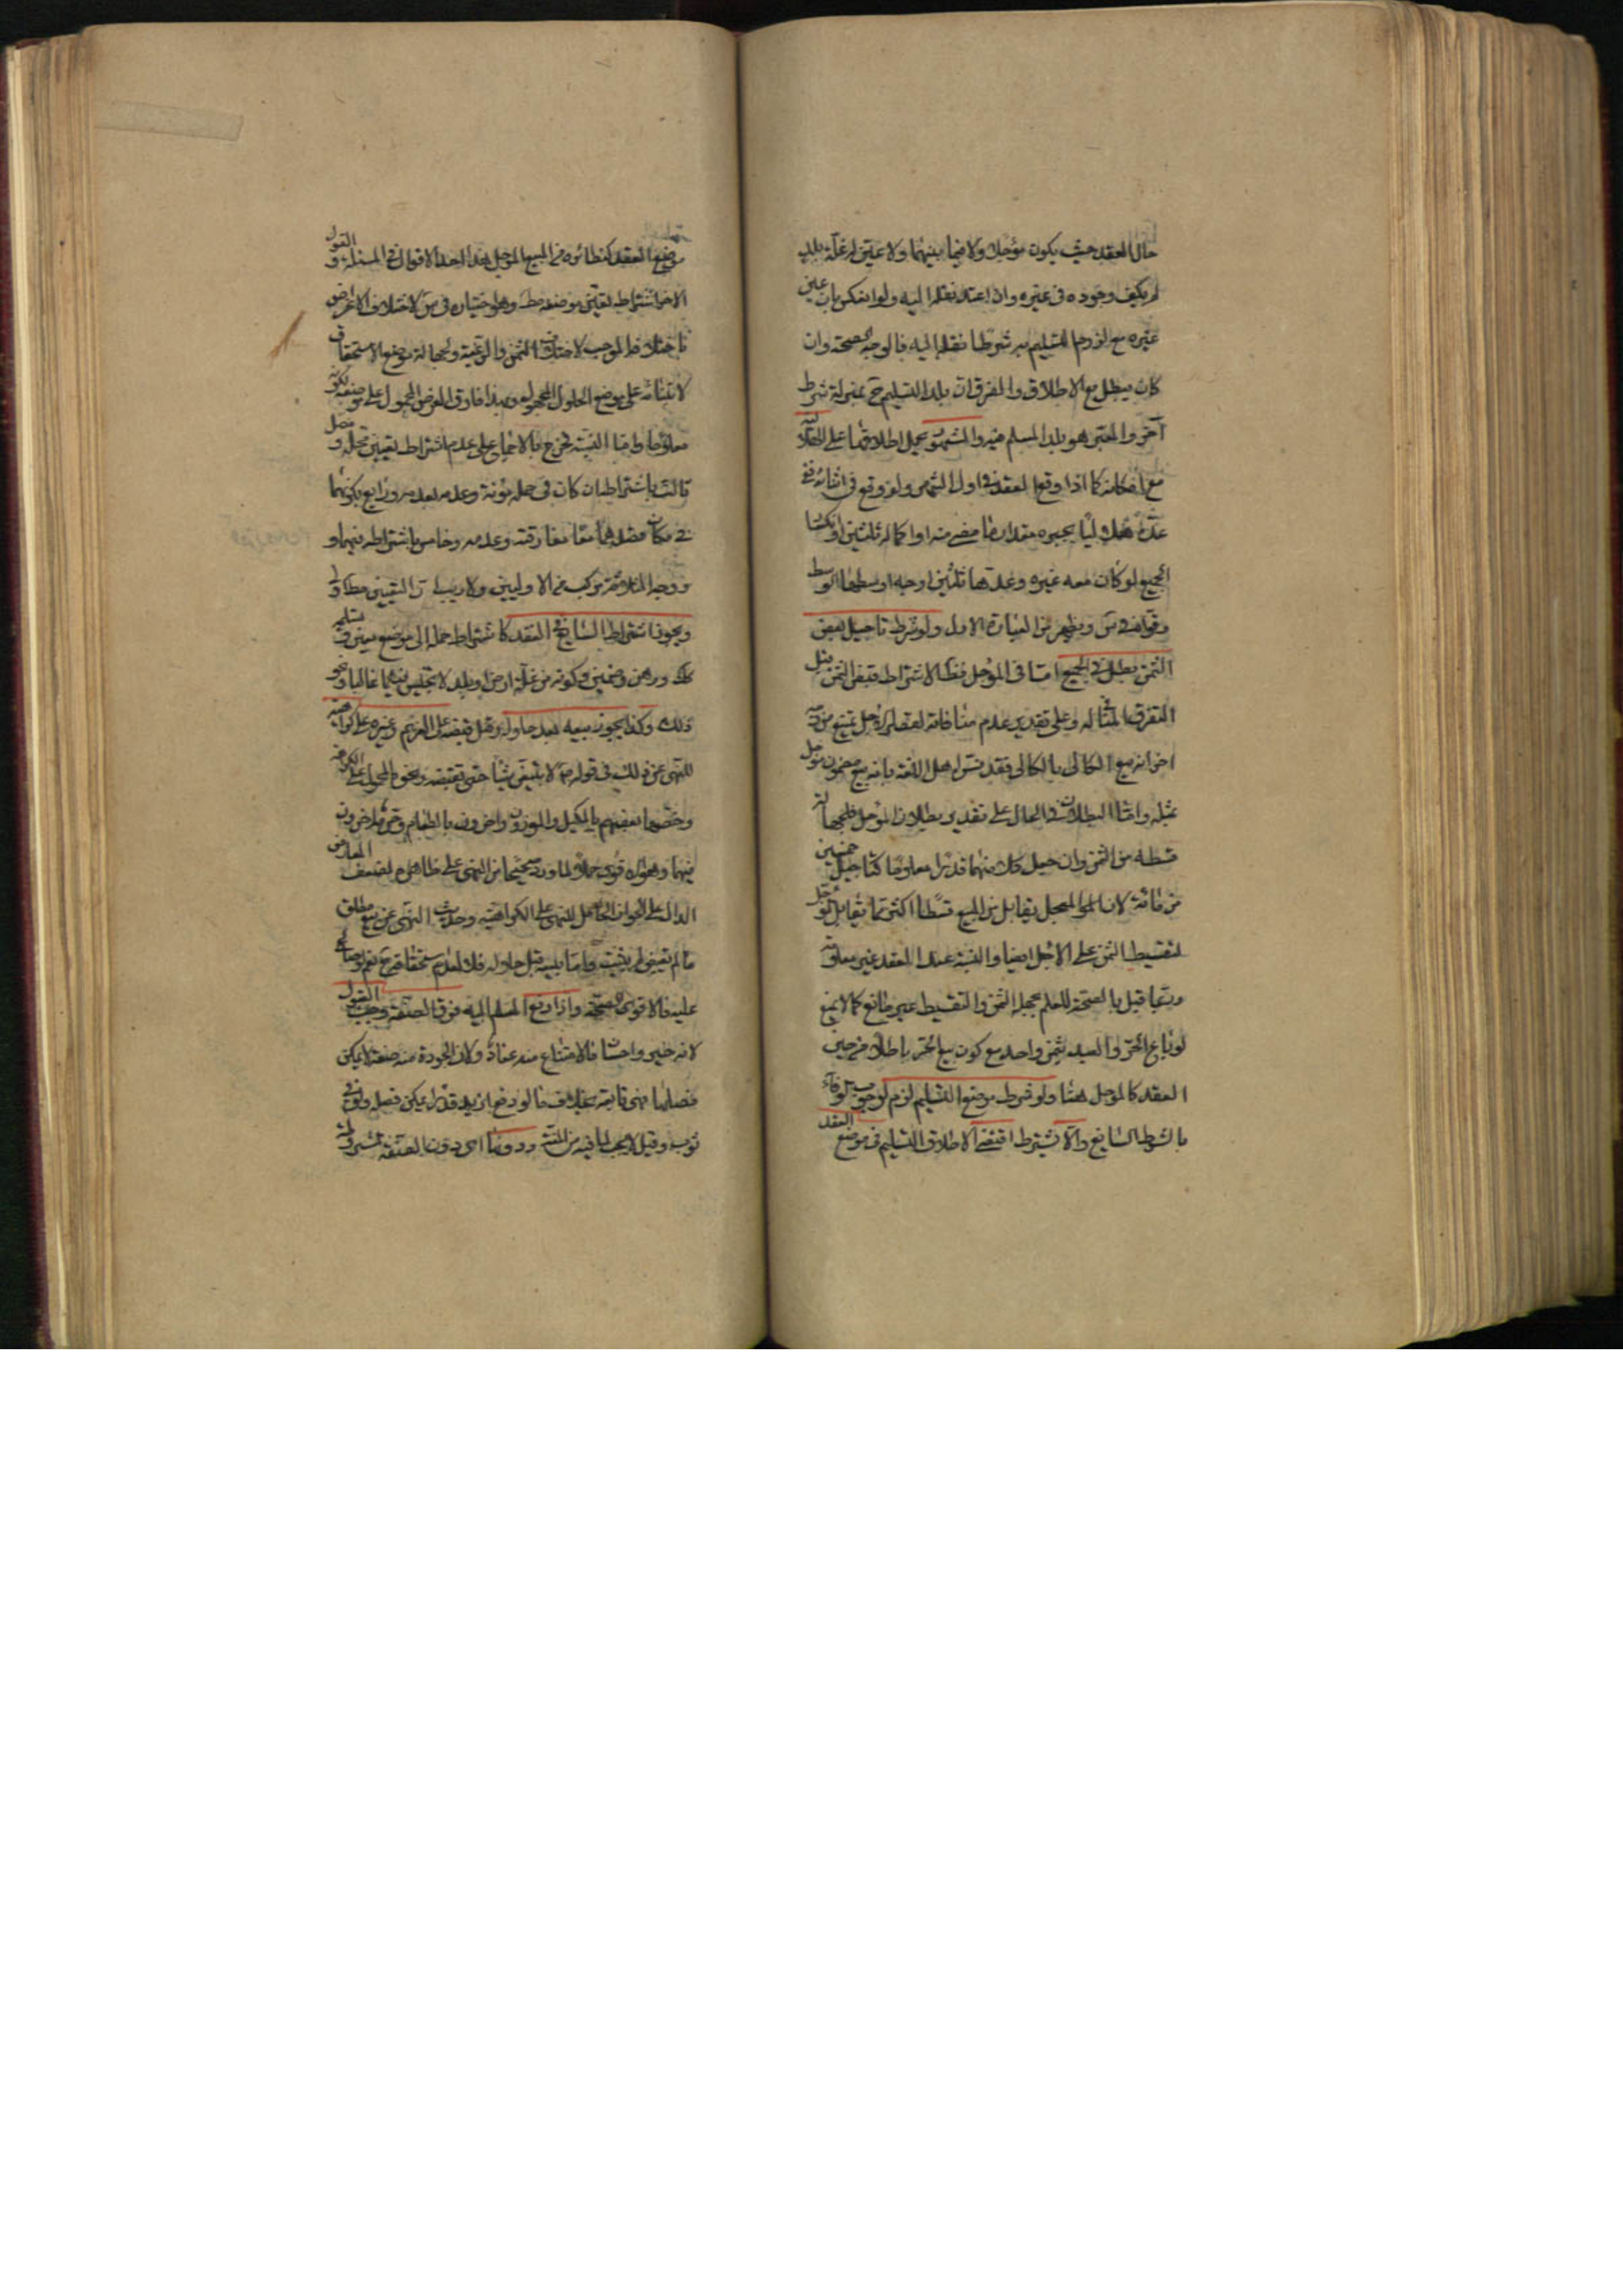 حال العقد حيث يكون مؤجلا ولا فيما بينهما ولا عين له غلة بلد
لم يكف وجوده في غيره وان اعتد نقله اليه ولو انعكس بان عين
غيره مع لزوم التسليم به شرطا نقله اليه فالوجه الصحة وان
كان يبطل مع الاطلاق والفرق ان بلد التسليم ح بمنزلة شرط
آخر والمعتبر هو بلد المسلم فيه والشهور يحمل اطلاقها على الهلالية
مع امكانه كما اذا وقع العقد في اول الشهر ولو وقع في اثنائه ففي
عده هلاليا بجبره مقدار ما مضى منه او اكماله ثلثين او انكسار
الجميع لو كان معه غيره وعدها ثلثين اوجه اوسطها الوسط
وقواه في س ويظهر من العبارة الاول ولو شرط تاجيل بعض
الثمن بطل في الجميع اما في المؤجل فظ لاشتراط قبض الثمن قبل
التفرق المنافي له وعلى تقدير عدم منافاته لقصر الاجل يمتنع من جهة
اخرى انه بيع الكالي بالكالي فقد فسره اهل اللغة بانه بيع مضمون مؤجل
بمثله واما البطلان في الحال على تقدير بطلان المؤجل فلجهالة
قسطه من الثمن وان جعل كلا منهما قدرا معلوما كتاجيل خمسين
من مائة لان المعجل يقابل من المبيع قسطا اكثر مما يقابل المؤجل
لتقسيط الثمن على الاجل ايضا والنسبة عند العقد غير معلومة
وربما قيل بالصحة للعلم بجملة الثمن والتقسيط غير مانع كما لا يمنع
لو باع الحر والعبد بثمن واحد مع كون بيع الحر باطلا من حين
العقد كالمؤجل هنا ولو شرط موضع التسليم لزم لوجوب الوفاء
بالشرط السائغ والا يشترط اقتضى الاطلاق التسليم في موضع العقد
موضع العقد كنظائره من المبيع المؤجل هذا احد الاقوال في المسئلة والقول
الاخر اشتراط تعيين موضعه مط وهو اختياره في س لاختلاف الاغراض
باختلافه الموجب لاختلاف الثمن والرغبة ولجهالة موضع الاستحقاق
لابتنائه على موضع الحلول المجهول وبهذا فارق القرض المحمول على موضعه لكونه
معلوما واما النسيئة فخرج بالاجماع على عدم اشتراط تعيين محله وفصل
ثالث باشتراطه ان كان في حمله مؤنة وعدمه بعدمه ورابع بكونهما
في مكان قصدهما مفارقته وعدمه وخامس باشتراطه فيهما و
ووجه الثلاثة مركب من الاولين ولا ريب ان التعيين مطلقا اولى
ويجوز اشتراط السائغ في العقد كاشتراط حمله الى موضع معين وتسليمه
كك ورهن وضمين وكونه من غلة ارض او بلد لا تخيس فيهما غالبا ونحو
ذلك وكذا يجوز بيعه بعد حلوله وقبل قبضه على الغريم وغيره على كراهية
للنهي عن ذلك في قوله ص لا تبيعن شيئا حتى تقبضه ونحوه المحمول على الكراهة
وخصها بعضهم بالمكيل والموزون واخرون بالطعام وحرمه اخرون
فيهما وهو الاقوى حملا لما ورد صحيحا من النهي على ظاهره لضعف المعارض
الدال على الجواز الحامل للنهي على الكراهية وحديث النهي عن بيع مطلق
ما لم يقبض لم يثبت واما بيعه قبل حلوله فلا لعدم استحقاقه ح نعم لو صالح
عليه فالاقوى الصحة واذا دفع المسلم اليه فوق الصفة وجب القبول
لانه خير واحسان فالامتناع منه عناد ولان الجودة منه صفة لا يمكن
فصلها فهي تابعة بخلاف ما لو دفع ازيد قدرا يمكن فصله ولو في
ثوب وقيل لا يجب لما فيه من المنة ودونها اى دون الصفة المشروطة